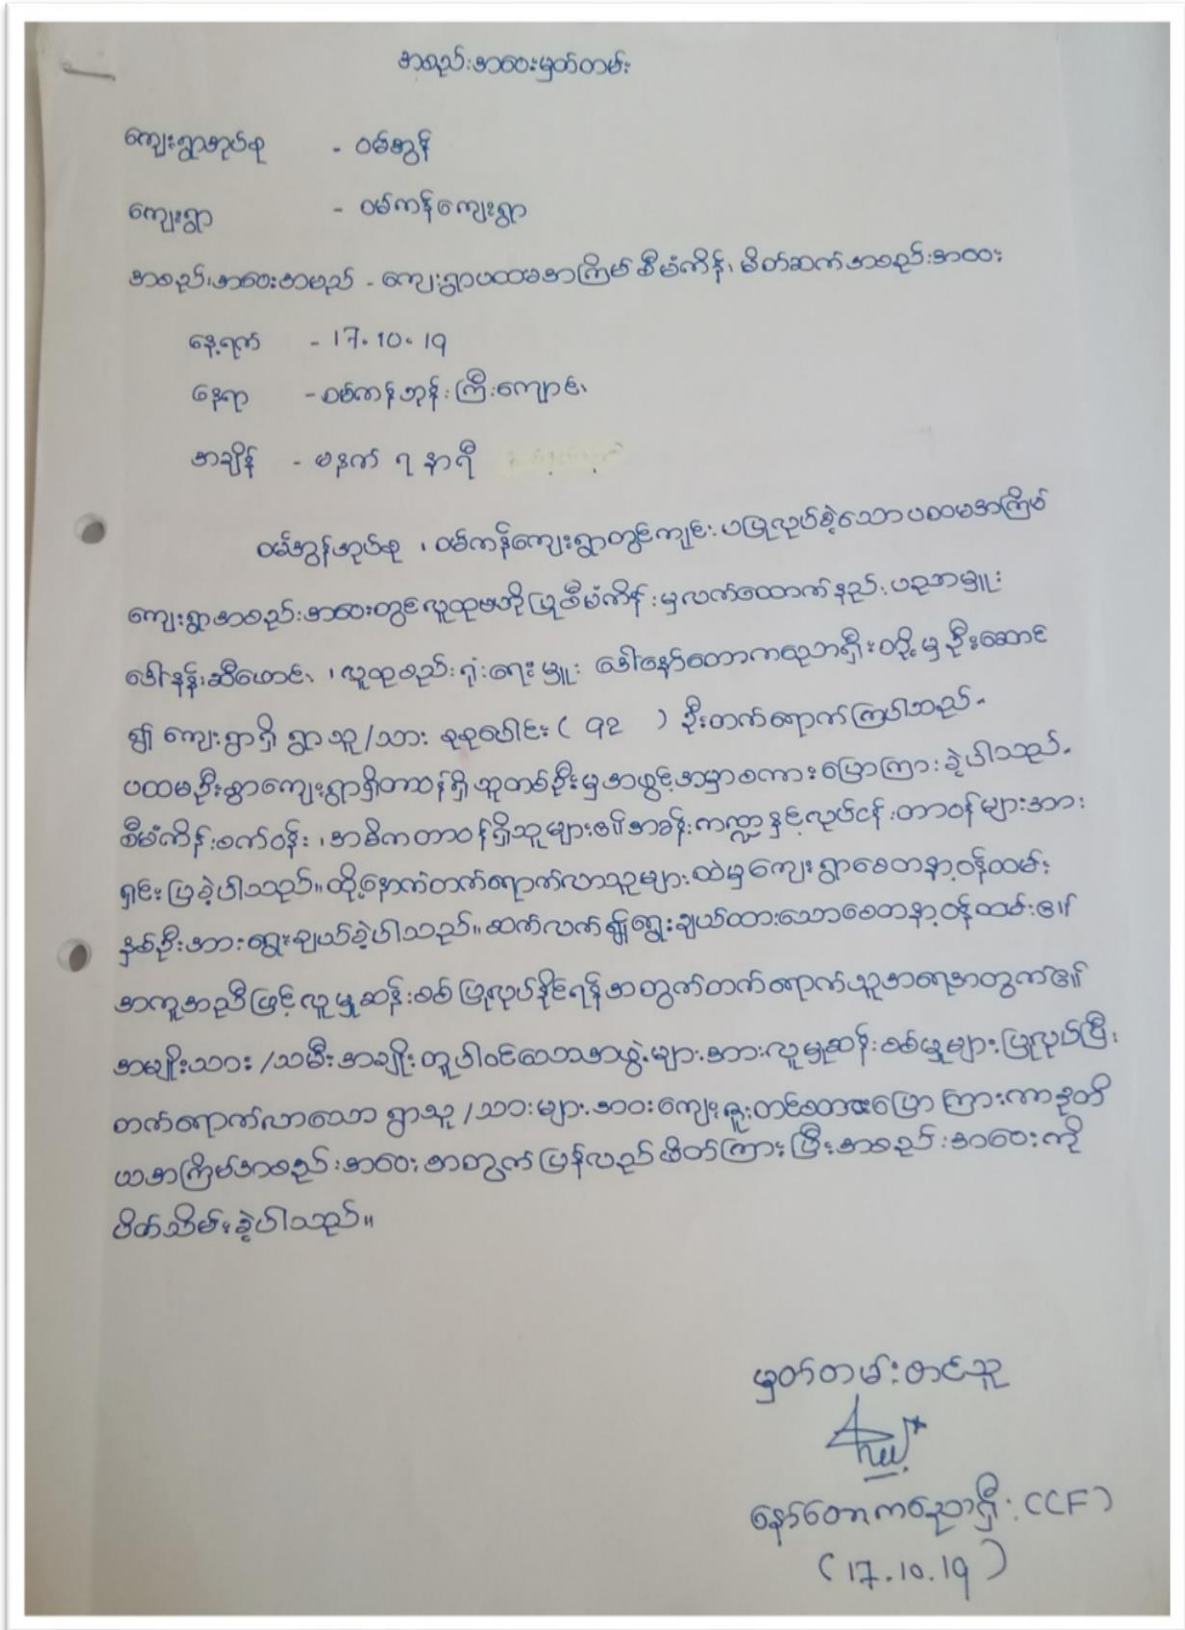 အစည်းအဝေးမှတ်တမ်း
ကျေးရွာအုပ်စု - ဝမ်အွန်
ကျေးရွာ - ဝမ်ကန်ကျေးရွာ
အစည်းအဝေးအမည် - ကျေးရွာပထမအကြိမ် စီမံကိန်း မိတ်ဆက်အစည်းအဝေး
နေ့ရက် - 17.10.19
နေရာ - ဝမ်ကန်ဘုန်းကြီးကျောင်း
အချိန် - မနက် ၇ နာရီ
ဝမ်အွန်အုပ်စု ၊ ဝမ်ကန်ကျေးရွာတွင်ကျင်းပပြုလုပ်ခဲ့သောပထမအကြိမ်
ကျေးရွာအစည်းအဝေးတွင်လူထုဗဟိုပြုစီမံကိန်းမှလက်ထောက်နည်းပညာမှူး
ဒေါ်နန်းဆီဖောင်း ၊ လူထုစည်းရုံးရေးမှူး ဒေါ်နော်တောကညောရှီးတို့မှဦးဆောင်
၍ ကျေးရွာရှိ ရွာသူ/သား စုစုပေါင်း ( ၅၃ ) ဦးတက်ရောက်ကြပါသည်။
ပထမဦးစွာကျေးရွာရှိတာဝန်ရှိသူတစ်ဦးမှအဖွင့်အမှာစကားပြောကြားခဲ့ပါသည်။
စီမံကိန်းစက်ဝန်း ၊ အဓိကတာဝန်ရှိသူများ၏အခန်းကဏ္ဍနှင့်လုပ်ငန်းတာဝန်များအား
ရှင်းပြခဲ့ပါသည်။ ထို့နောက်တက်ရောက်လာသူများထဲမှကျေးရွာစေတနာ့ဝန်ထမ်း
နှစ်ဦးအားရွေးချယ်ခဲ့ပါသည်။ ဆက်လက်၍ရွေးချယ်ထားသောစေတနာ့ဝန်ထမ်း၏
အကူအညီဖြင့်လူမှုဆန်းစစ်ပြုလုပ်နိုင်ရန်အတွက်တက်ရောက်သူအရေအတွက်၏
အမျိုးသား/သမီးအချိုးတူပါဝင်သောအဖွဲ့များအားလူမှုဆန်းစစ်မှုများပြုလုပ်ပြီး
တက်ရောက်လာသော ရွာသူ/သားများအားကျေးဇူးတင်စကားပြောကြားကာဒုတိ
ယအကြိမ်အစည်းအဝေးအတွက်ပြန်လည်ဖိတ်ကြားပြီးအစည်းအဝေးကို
ပိတ်သိမ်းခဲ့ပါသည်။
မှတ်တမ်းတင်သူ
နော်တောကညောရှီး (CCF)
(17.10.19)